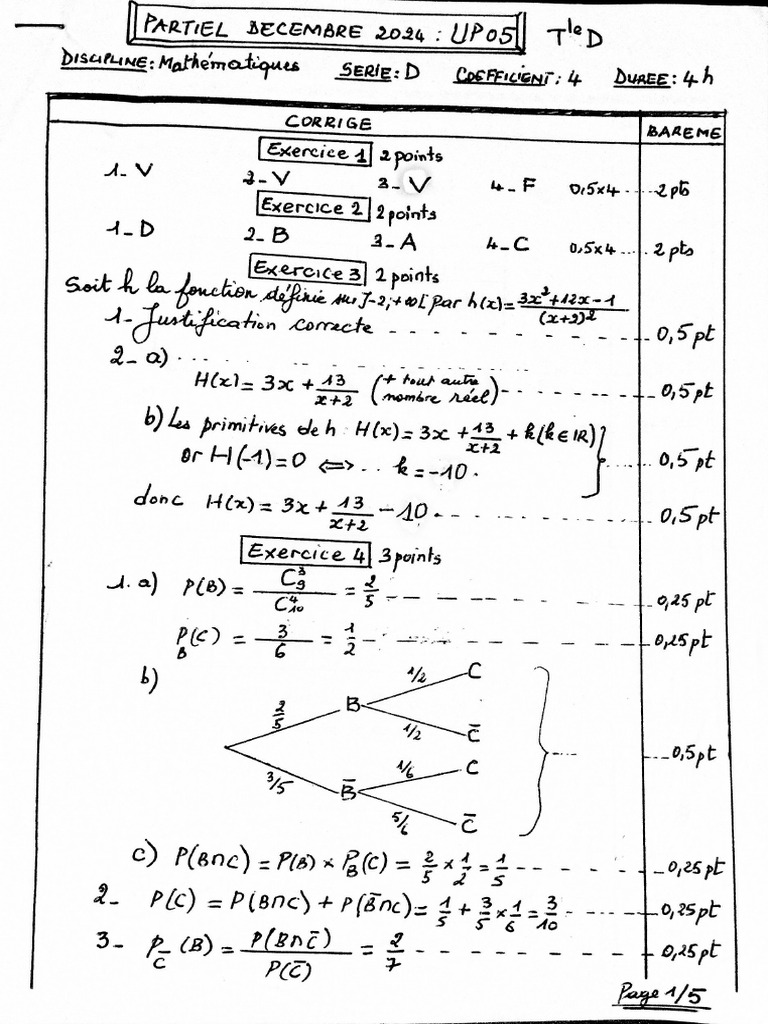 PARTIEL DECEMBRE 2024 : UP05 Tle D
DISCIPLINE : Mathématiques SERIE : D COEFFICIENT : 4 DUREE : 4h
CORRIGE BAREME
Exercice 1 2 points
1_ V 2_ V 3_ V 4_ F 0,5x4 ..... 2 pts
Exercice 2 2 points
1_ D 2_ B 3_ A 4_ C 0,5x4 .... 2 pts
Exercice 3 2 points
Soit h la fonction définie sur ]-2;+∞[ par h(x) = (3x²+12x-1)/(x+2)²
1_ Justification correcte - - - - - - - 0,5 pt
2_ a) ..........
H(x) = 3x + 13/(x+2) (+ tout autre nombre réel) - - - - 0,5 pt
b) Les primitives de h H(x) = 3x + 13/(x+2) + k (k ∈ IR)
or H(-1) = 0 ⟺ .. k = -10 . - - - - 0,5 pt
donc H(x) = 3x + 13/(x+2) - 10 . - - - - - - 0,5 pt
Exercice 4 3 points
1. a) P(B) = C₉³/C₁₀⁴ = 2/5 - - - - - - 0,25 pt
P_B(C) = 3/6 = 1/2 - - - - - - 0,25 pt
b)
2/5 B 1/2 C
1/2 C̄
3/5 B̄ 1/6 C
5/6 C̄
..... 0,5 pt
c) P(B∩C) = P(B) × P_B(C) = 2/5 × 1/2 = 1/5 - - - - 0,25 pt
2_ P(C) = P(B∩C) + P(B̄∩C) = 1/5 + 3/5 × 1/6 = 3/10 - - - - 0,25 pt
3_ P_C̄(B) = P(B∩C̄)/P(C̄) = 2/7 - - - - - - 0,25 pt
Page 1/5